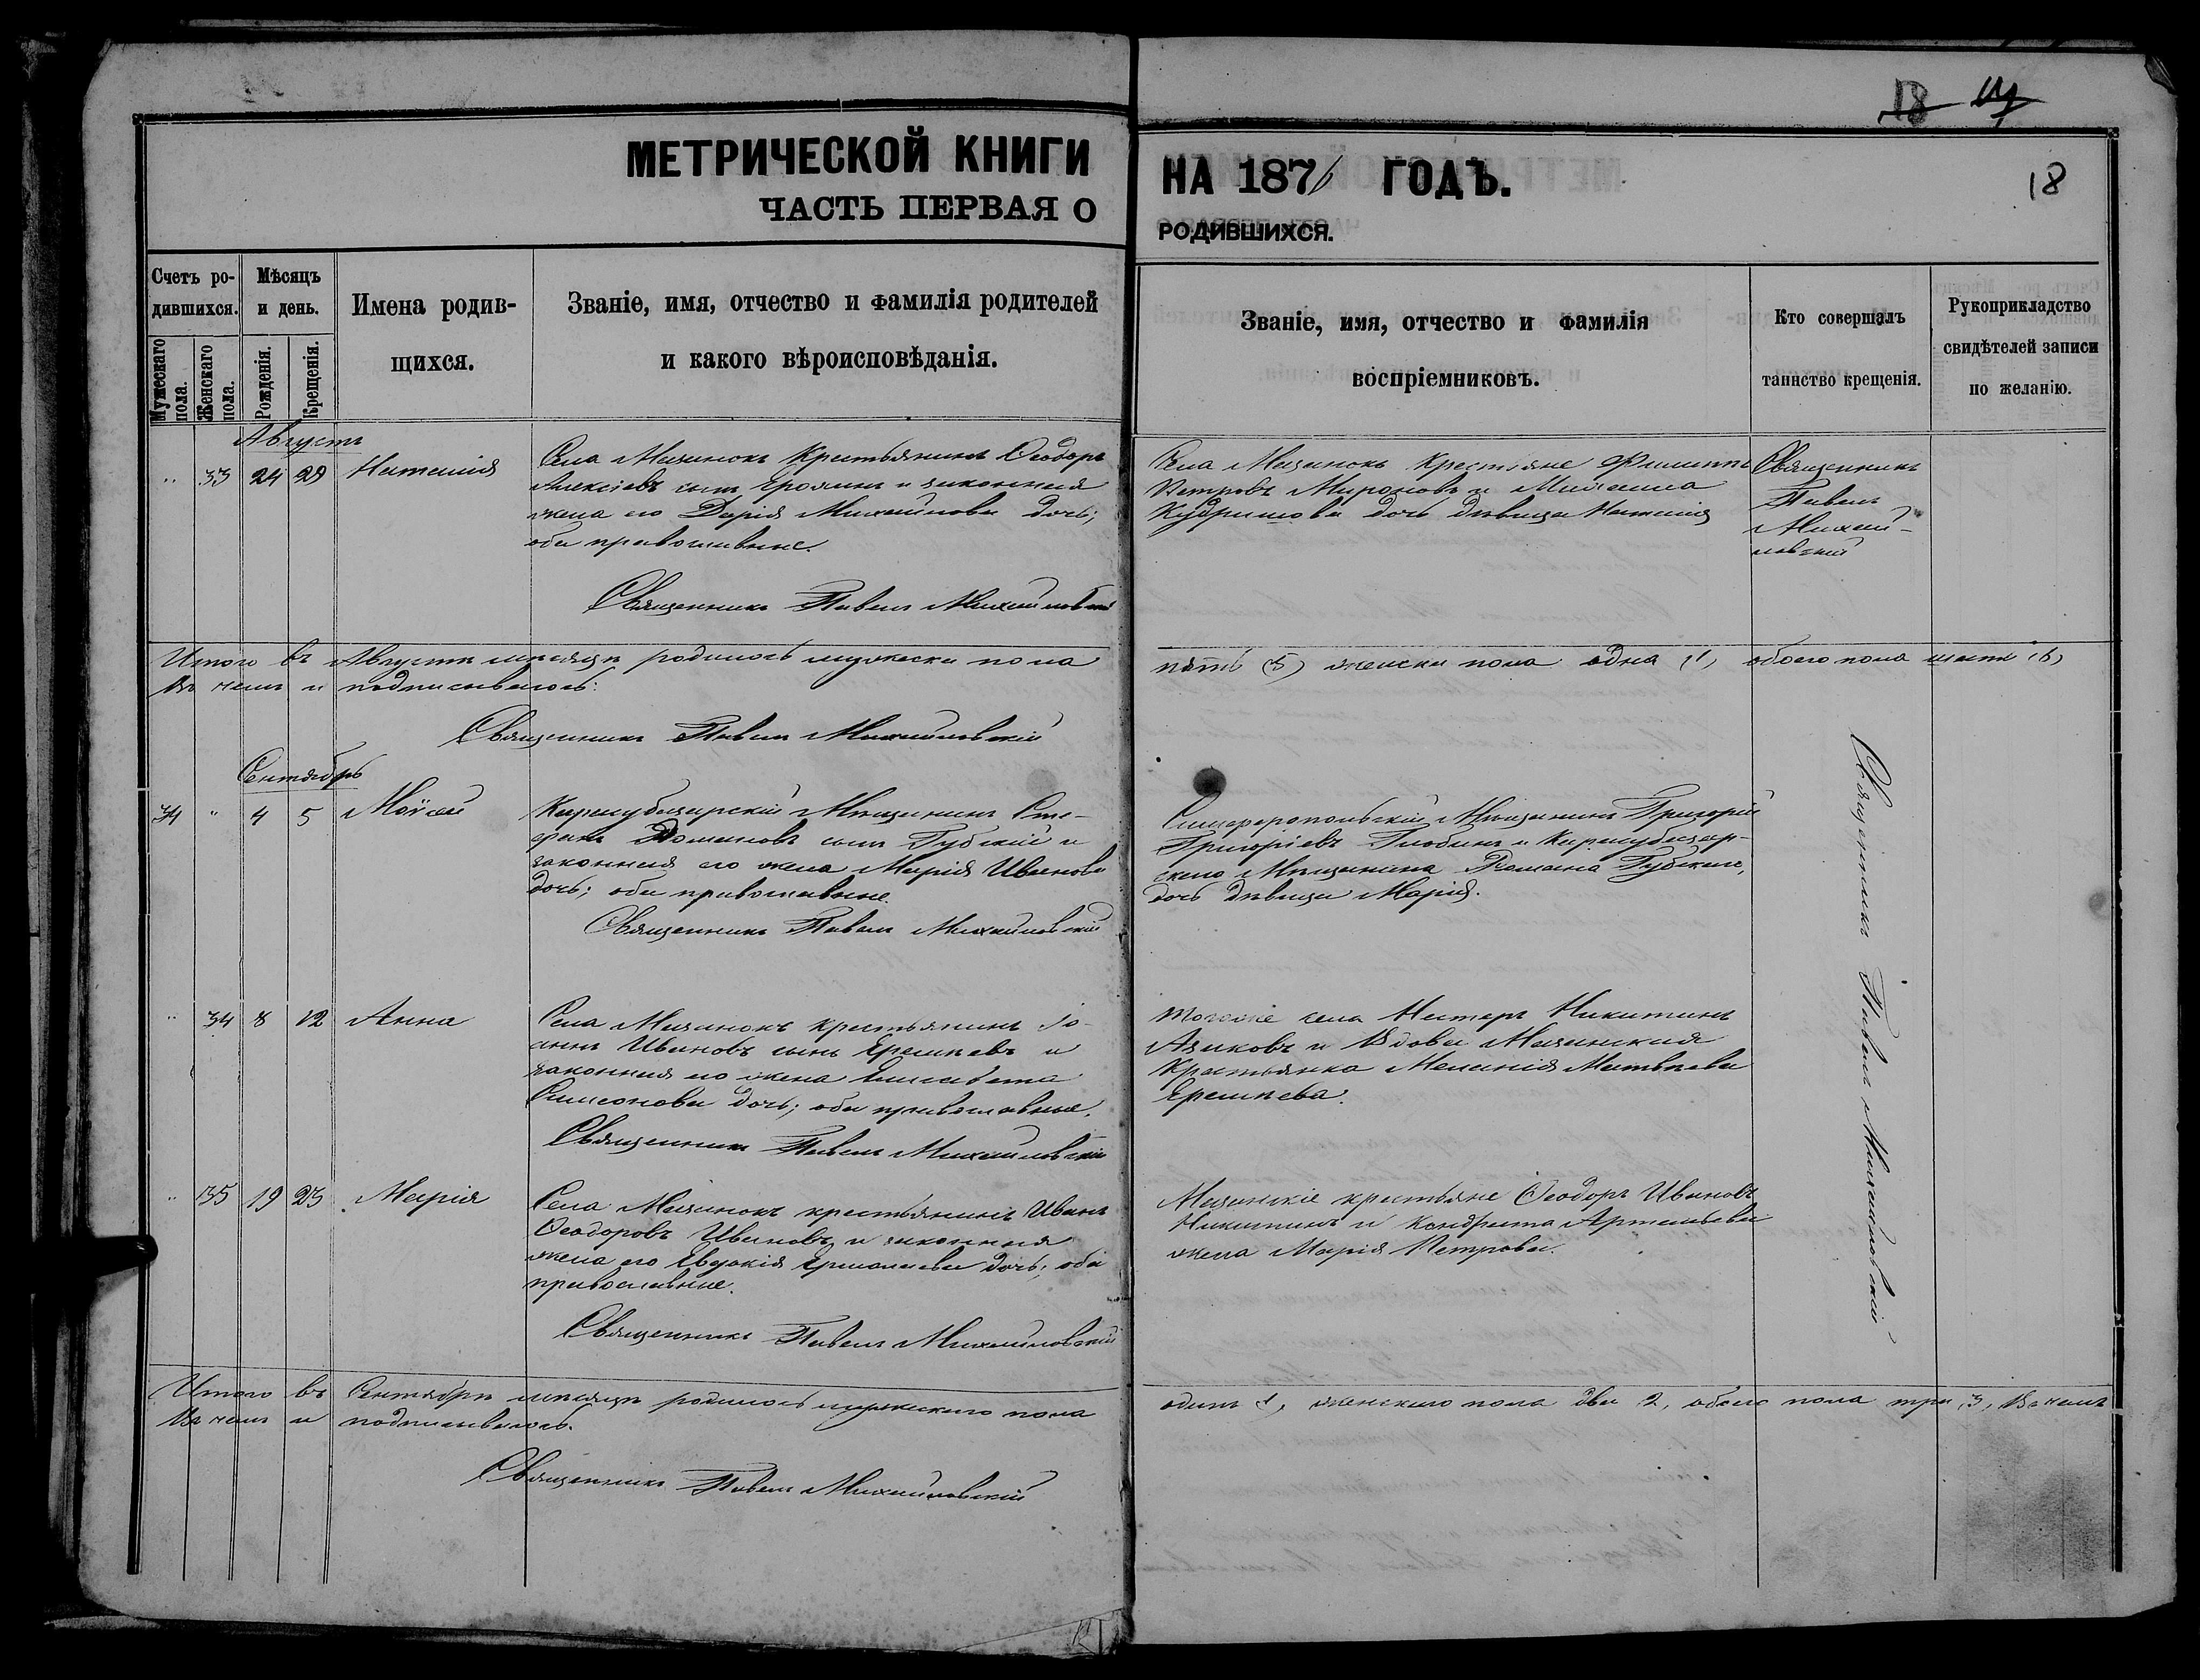 18
МЕТРИЧЕСКОЙ КНИГИ НА 1876 ГОДЪ.
18
ЧАСТЬ ПЕРВАЯ О РОДИВШИХСЯ.
Счетъ ро-
дившихся.
Мужескаго пола.
Женскаго пола.
Мѣсяцъ
и день.
Рожденія.
Крещенія.
Имена родив-
щихся.
Званіе, имя, отчество и фамилія родителей
и какого вѣроисповѣданія.
Званіе, имя, отчество и фамилія
воспріемниковъ.
Кто совершалъ
таинство крещенія.
Рукоприкладство
свидѣтелей записи
по желанію.
Августъ
" 33 24 29 Наталія
Села Мазанокъ Крестьянинъ Ѳеодоръ
Алексіевъ сынъ и законная
жена его Дарія Михайлова дочь;
оба православные.
Священникъ Павелъ Михайловскій
Села Мазанокъ Крестьяне Филиппъ
Петровъ Мироновъ и Михаила
Кудряшова дочь дѣвица Наталія
Священникъ
Павелъ
Михай-
ловскій
Итого въ Августѣ мѣсяцѣ родилось мужеска пола пять (5) женска пола одна (1) обоего пола шесть (6)
Въ чемъ и подписываюсь:
Священникъ Павелъ Михайловскій
Сентябрь
34 " 4 5 Моѵсей
Карасубазарскій Мѣщанинъ Сте-
фанъ сынъ Губскій и
законная его жена Марія Иванова
дочь; оба православные.
Священникъ Павелъ Михайловскій
Симферопольскій Мѣщанинъ Григорій
Григоріевъ и Карасубазар-
скаго Мѣщанина Романа Губскаго,
дочь дѣвица Марія.
" 34 8 12 Анна
Села Мазанокъ крестьянинъ Іо-
аннъ Ивановъ сынъ Ерешнев и
законная его жена Елисавета
Симеонова дочь; оба православные.
Священникъ Павелъ Михайловскій
Тогоже села Нестеръ Никитинъ
и Вдова Мазанская
Крестьянка Меланія Матвѣева
" 35 19 23 Марія
Села Мазанокъ крестьянинъ Иванъ
Ѳеодоровъ Ивановъ и законная
жена его Евдокія Ермолаева дочь; оба
православные.
Священникъ Павелъ Михайловскій
Мазанскіе крестьяне Ѳеодоръ Ивановъ
Никитинъ и Кондрата Артемьева
жена Марія Петрова.
Священникъ Павелъ Михайловскій
Итого въ Сентябрѣ мѣсяцѣ родилось мужескаго пола одинъ 1, женскаго пола два 2, обоего пола три, 3, Въ чемъ
Въ чемъ и подписываюсь.
Священникъ Павелъ Михайловскій